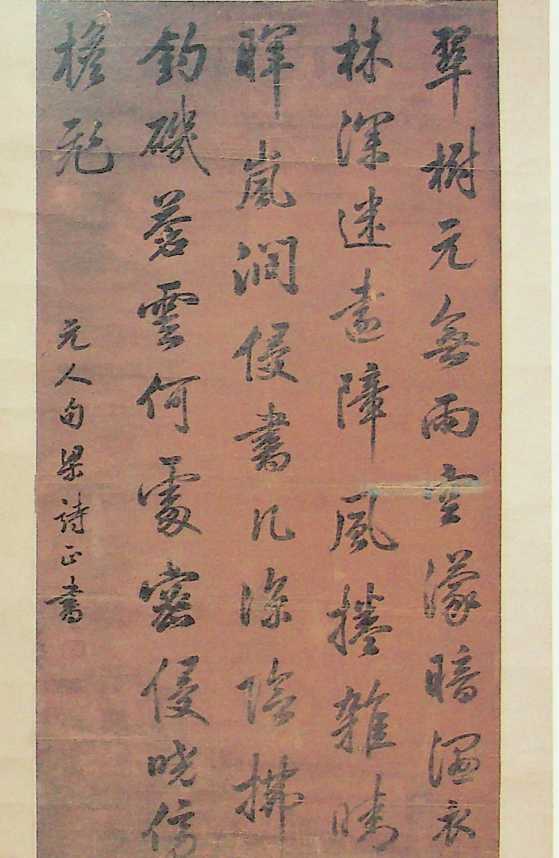 翠樹元無雨空濛暗濕衣
林深迷遠障風捲雜晴
暉嵐潤侵書几深陰拂
釣磯蒼雲何處密侵曉傍
檐飛
元人句梁詩正書